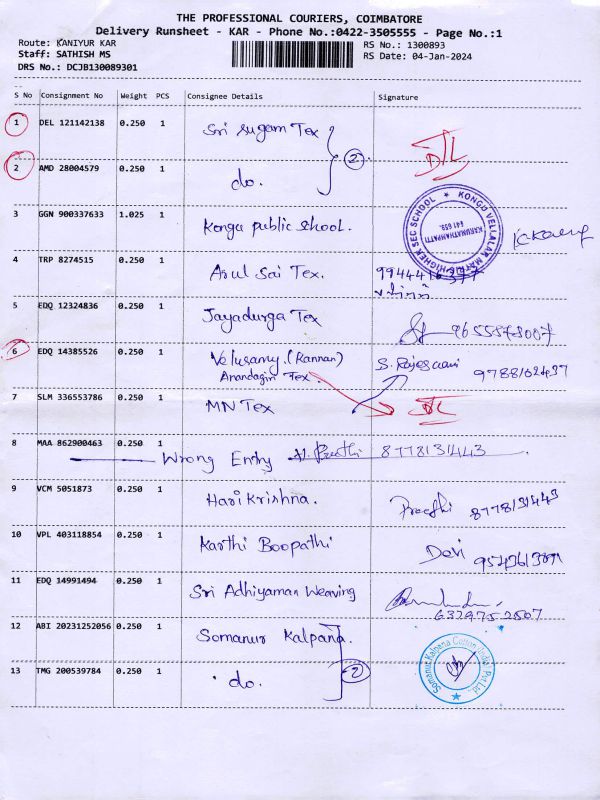 THE PROFESSIONAL COURIERS, COIMBATORE
Delivery Runsheet - KAR - Phone No.:0422-3505555 - Page No.:1
Route: KANIYUR KAR
RS No.: 1300893
Staff: SATHISH MS
RS Date: 04-Jan-2024
DRS No.: DCJB130089301
S No Consignment No Weight PCS Consignee Details Signature
1 DEL 121142138 0.250 1 Sri Sugam Tex
2 AMD 28004579 0.250 1 do. 2
3 GGN 900337633 1.025 1 Kongu public school.
KONGU VELLALAR MATRIC HIGHER SEC SCHOOL ★
KARUMATHAMPATTI
641 659.
4 TRP 8274515 0.250 1 Arul Sai Tex.
5 EDQ 12324836 0.250 1 Jayadurga Tex
6 EDQ 14385526 0.250 1 Velusamy (Kannan) S. Rajeswari
Anandagiri Tex
7 SLM 336553786 0.250 1 MN Tex
8 MAA 862900463 0.250 1 Wrong Entry 8778131443
9 VCM 5051873 0.250 1 Hari Krishna. Preethi 8778131443
10 VPL 403118854 0.250 1 Karthi Boopathi Devi
11 EDQ 14991494 0.250 1 Sri Adhiyaman Weaving
6329752507
12 ABI 20231252056 0.250 1 Somanur Kalpana.
13 TMG 200539784 0.250 1 do. 2
Somanur Kalpana Cotton (India) Pvt Ltd., ★